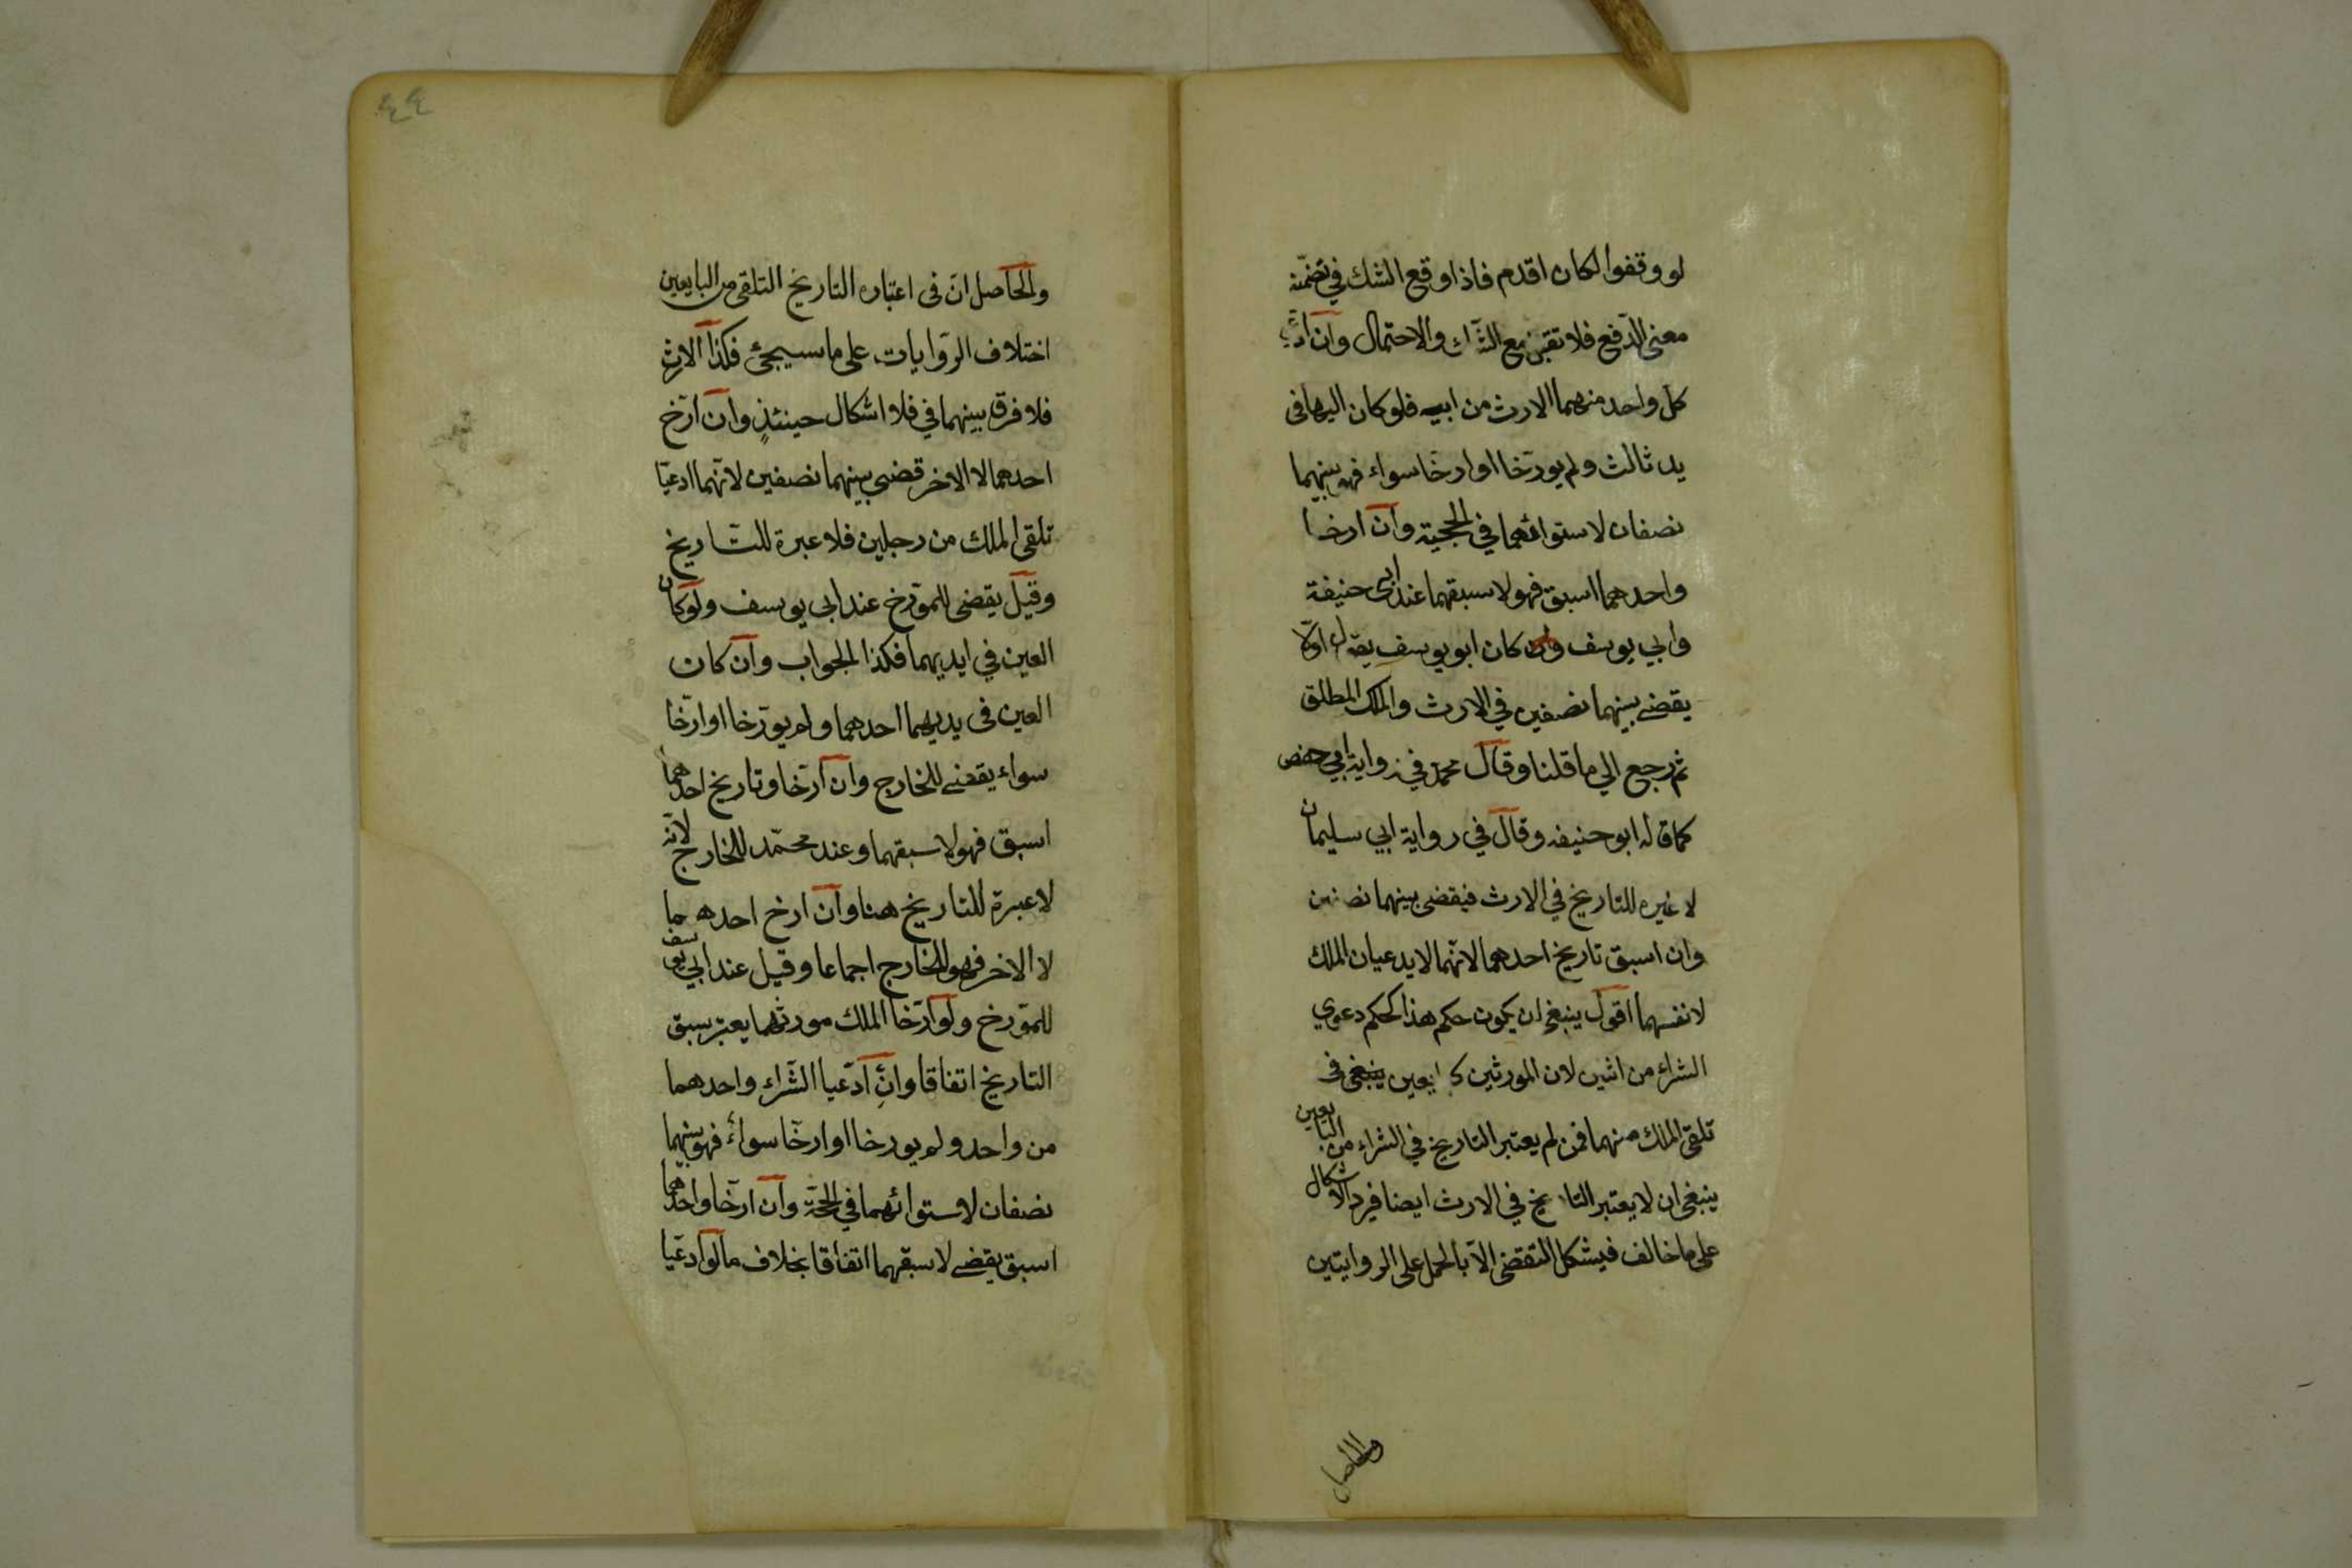 لو وقفوا لكان اقدم فاذا وقع الشك في تضمنه
معنى الدفع فلا تقبل مع الشك والاحتمال وان ادعى
كل واحد منهما الارث من ابيه فلو كان اليها فى
يد ثالث ولم يورخا او ارخا سواء فهو بينهما
نصفان لاستوائهما في الحجية وان ارخا
واحدهما اسبق فهو لاسبقهما عند ابي حنيفة
وابي يوسف وان كان ابو يوسف يقول اولا
يقضى بينهما نصفين في الارث والملك المطلق
ثم رجع الي ما قلنا وقال محمد في رواية ابي حفص
كما قاله ابو حنيفه وقال في رواية ابي سليمان
لا عبره للتاريخ في الارث فيقضى بينهما نصفين
وان اسبق تاريخ احدهما لانهما لا يدعيان الملك
لانفسهما اقول ينبغي ان يكون حكم هذا كحكم دعوي
الشراء من اثنين لان المورثين كبايعين ينبغي فى
تلقى الملك منهما فمن لم يعتبر التاريخ في الشراء من البايعين
ينبغي ان لا يعتبر التاريخ في الارث ايضا فيرد الاشكال
على ما خالف فيشكل التقضى الا بالحمل على الروايتين
والحاصل
٤٤
والحاصل ان فى اعتباره التاريخ التلقى من البايعين
اختلاف الروايات على ما سيجئ فكذا الارث
فلا فرق بينهما في فلا اشكال حينئذ وان ارخ
احدهما لا الاخر قضي بينهما نصفين لانهما ادعيا
تلقى الملك من رجلين فلا عبرة للتاريخ
وقيل يقضى للمورخ عند ابى يوسف ولو كان
العين في ايديهما فكذا الجواب وان كان
العين فى يديهما احدهما ولم يورخا او ارخا
سواء يقضى للخارج وان ارخا وتاريخ احدهما
اسبق فهو لاسبقهما وعند محمد للخارج لانه
لا عبرة للتاريخ هنا وان ارخ احدهما
لا الاخر فهو للخارج اجماعا وقيل عند ابي يوسف
للمورخ ولو ارخا الملك مورثهما يعتبر سبق
التاريخ اتفاقا وان ادعيا الشراء واحدهما
من واحد ولم يورخا او ارخا سواء فهو بينهما
نصفان لاستوائهما في الحجة وان ارخا واحدهما
اسبق يقضى لاسبقهما اتفاقا بخلاف ما لو ادعيا